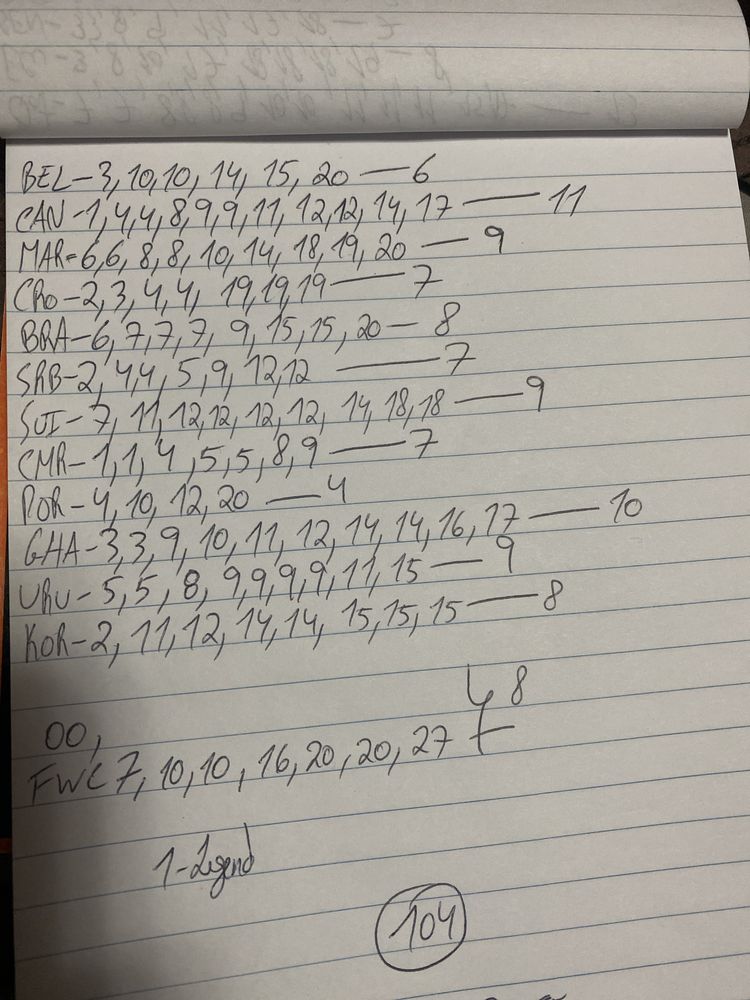 BEL-3, 10, 10, 14, 15, 20 — 6
CAN-1, 4, 4, 8, 9, 9, 11, 12, 12, 14, 17 — 11
MAR=6, 6, 8, 8, 10, 14, 18, 19, 20 — 9
CRO-2, 3, 4, 4, 19, 19, 19 — 7
BRA-6, 7, 7, 7, 9, 15, 15, 20 — 8
SRB-2, 4, 4, 5, 9, 12, 12 — 7
SUI-7, 11, 12, 12, 12, 12, 14, 18, 18 — 9
CMR-1, 1, 4, 5, 5, 8, 9 — 7
POR-4, 10, 12, 20 — 4
GHA-3, 3, 9, 10, 11, 12, 14, 14, 16, 17 — 10
URU-5, 5, 8, 9, 9, 9, 9, 11, 15 — 9
KOR-2, 11, 12, 14, 14, 15, 15, 15 — 8
00,
8
FWC 7, 10, 10, 16, 20, 20, 27
1-Legend
104